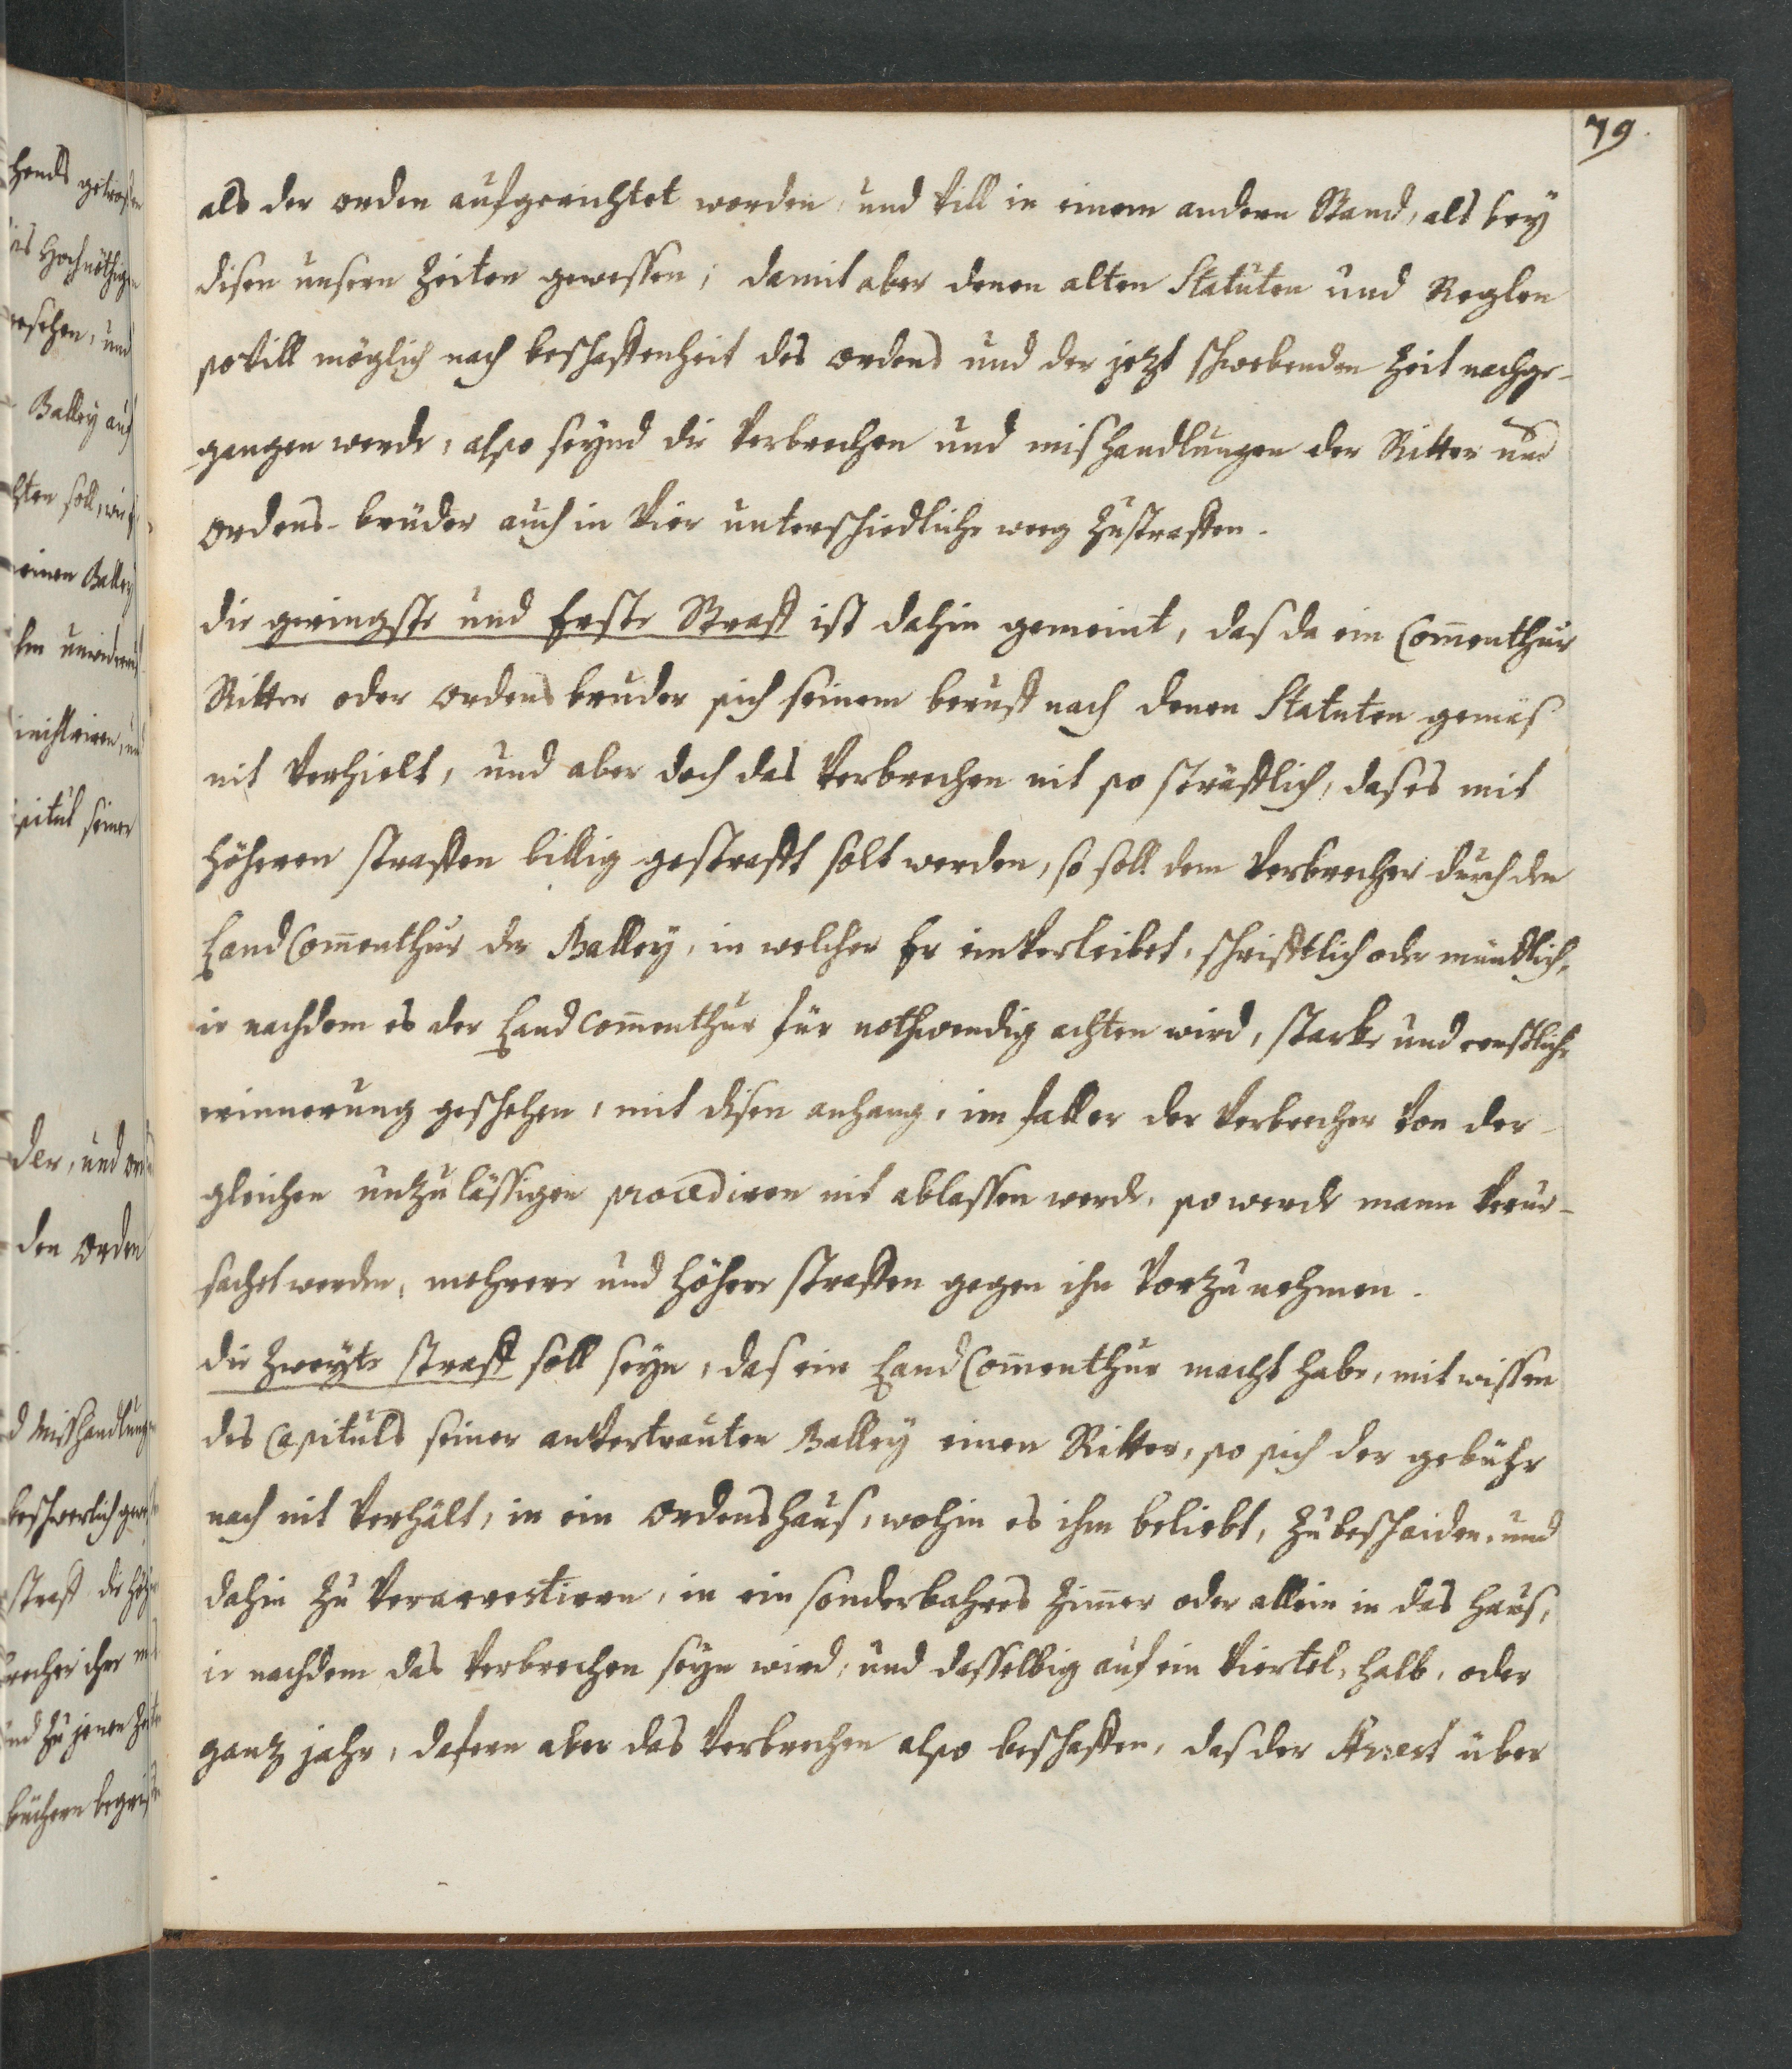 79.
als der orden aufgerichtet worden, und vill in einem andern Stand, als bey
disen unsern Zeiten gewessen; damit aber denen alten Statuten und Reglen
so vill möglich nach beschaffenheit des ordens und der jezt schwebenden Zeit nachge-
gangen werde, also seynd die Verbrechen und mishandlungen der Ritter und
ordens-brüder auch in Vier unterschiedliche weeg Zustraffen.
die geringste und Erste Straff ist dahin gemeint, das da ein Com̄enthur
Ritter oder ordens bruder sich seinem beruff nach denen Statuten gemäs
nit Verhielt, und aber doch das Verbrechen nit so sträfflich, das es mit
höheren straffen billig gestrafft solt werden, so soll dem Verbrecher durch den
Land Com̄enthur der Balley, in welcher Er einVerleibet, schrifftlich oder mündlich,
ie nachdem es der Land Com̄enthur für nothwendig achten wird, starke und ernstliche
erinnerung geschehen, mit disen anhang, im fall er der Verbrecher Von der-
gleichen unzulässigen procediren nit ablassen werde, so werde mann Verur-
sachet werden, mehrere und höhere straffen gegen ihn Vorzunehmen.
die Zweyte straff soll seyn, das ein Land Com̄enthur macht habe, mit wissen
des Capituls seiner anVertrauten Balley einen Ritter, so sich der gebühr
nach nit Verhält, in ein ordenshaus, wohin es ihm beliebt, Zu beschaiden, und
dahin Zu Verarrestiren, in ein sonderbahres Zim̄er oder allein in das haus,
ie nachdem das Verbrechen seyn wird, und dasselbig auf ein Viertel, halb, oder
ganz jahr, dafern aber das Verbrechen also beschaffen, das der Arrest über